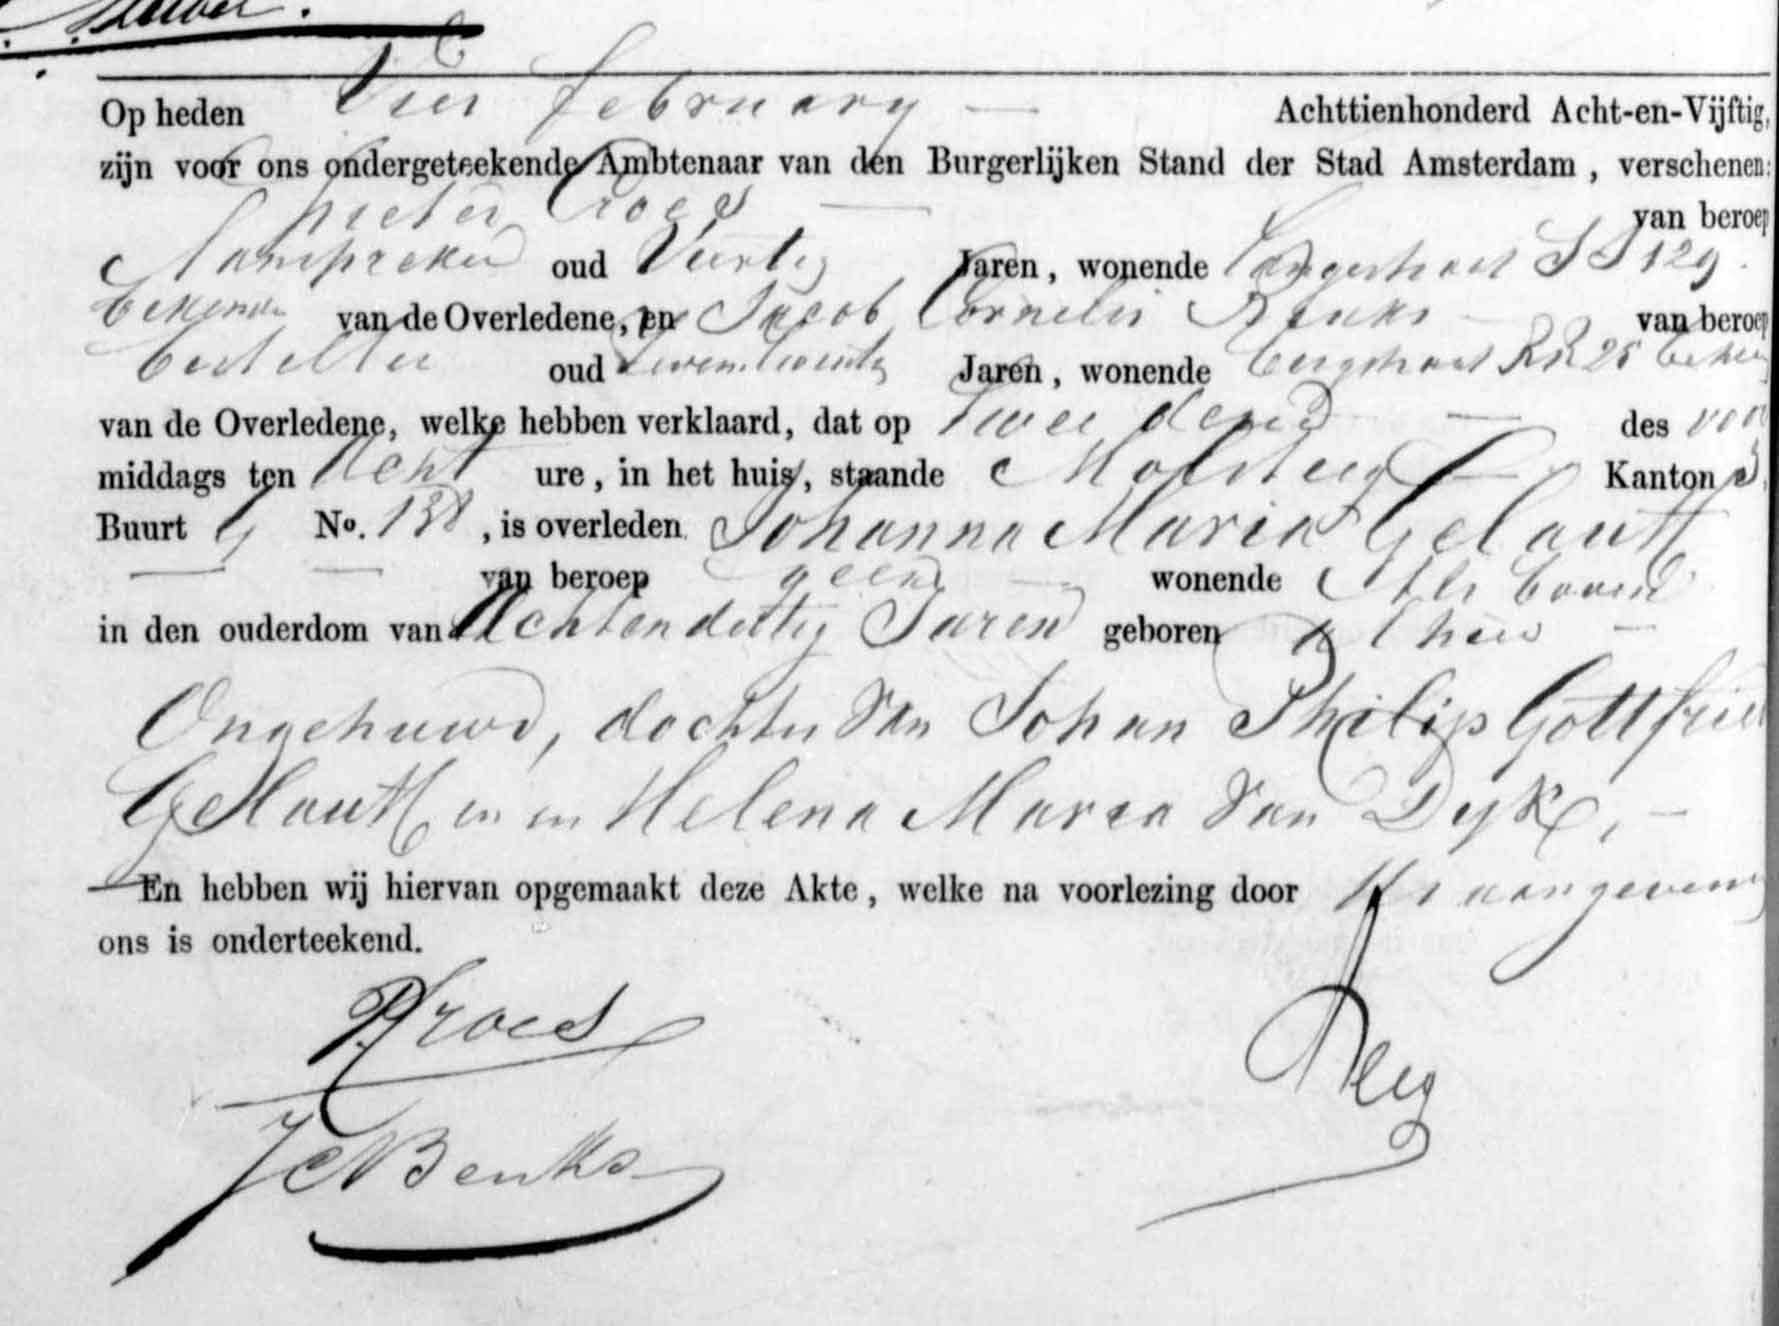 Op heden Vier february — Achttienhonderd Acht-en-Vijftig,
zijn voor ons ondergeteekende Ambtenaar van den Burgerlijken Stand der Stad Amsterdam, verschenen:
Pieter Croes — van beroep
Aanspreker oud Veertig Jaren, wonende Langestraat SS 129.
bekende van de Overledene, en Jacob Cornelis Benks — van beroep
besteller oud Jaren, wonende Bergstraat RR 25 beken
van de Overledene, welke hebben verklaard, dat op twee dezer — des voor
middags ten Acht ure, in het huis, staande Molsteeg — Kanton 3,
Buurt G No. 138, is overleden Johanna Maria Gelautt
— — van beroep geene — wonende Als boven
in den ouderdom van Achtendertig Jaren geboren alhier —
Ongehuwd, dochter van Johan Philip Gottfried
Gelautt en en Helena Maria van Dyk, —
En hebben wij hiervan opgemaakt deze Akte, welke na voorlezing door de aangevers
ons is onderteekend.
P. Kroes
JC Benks